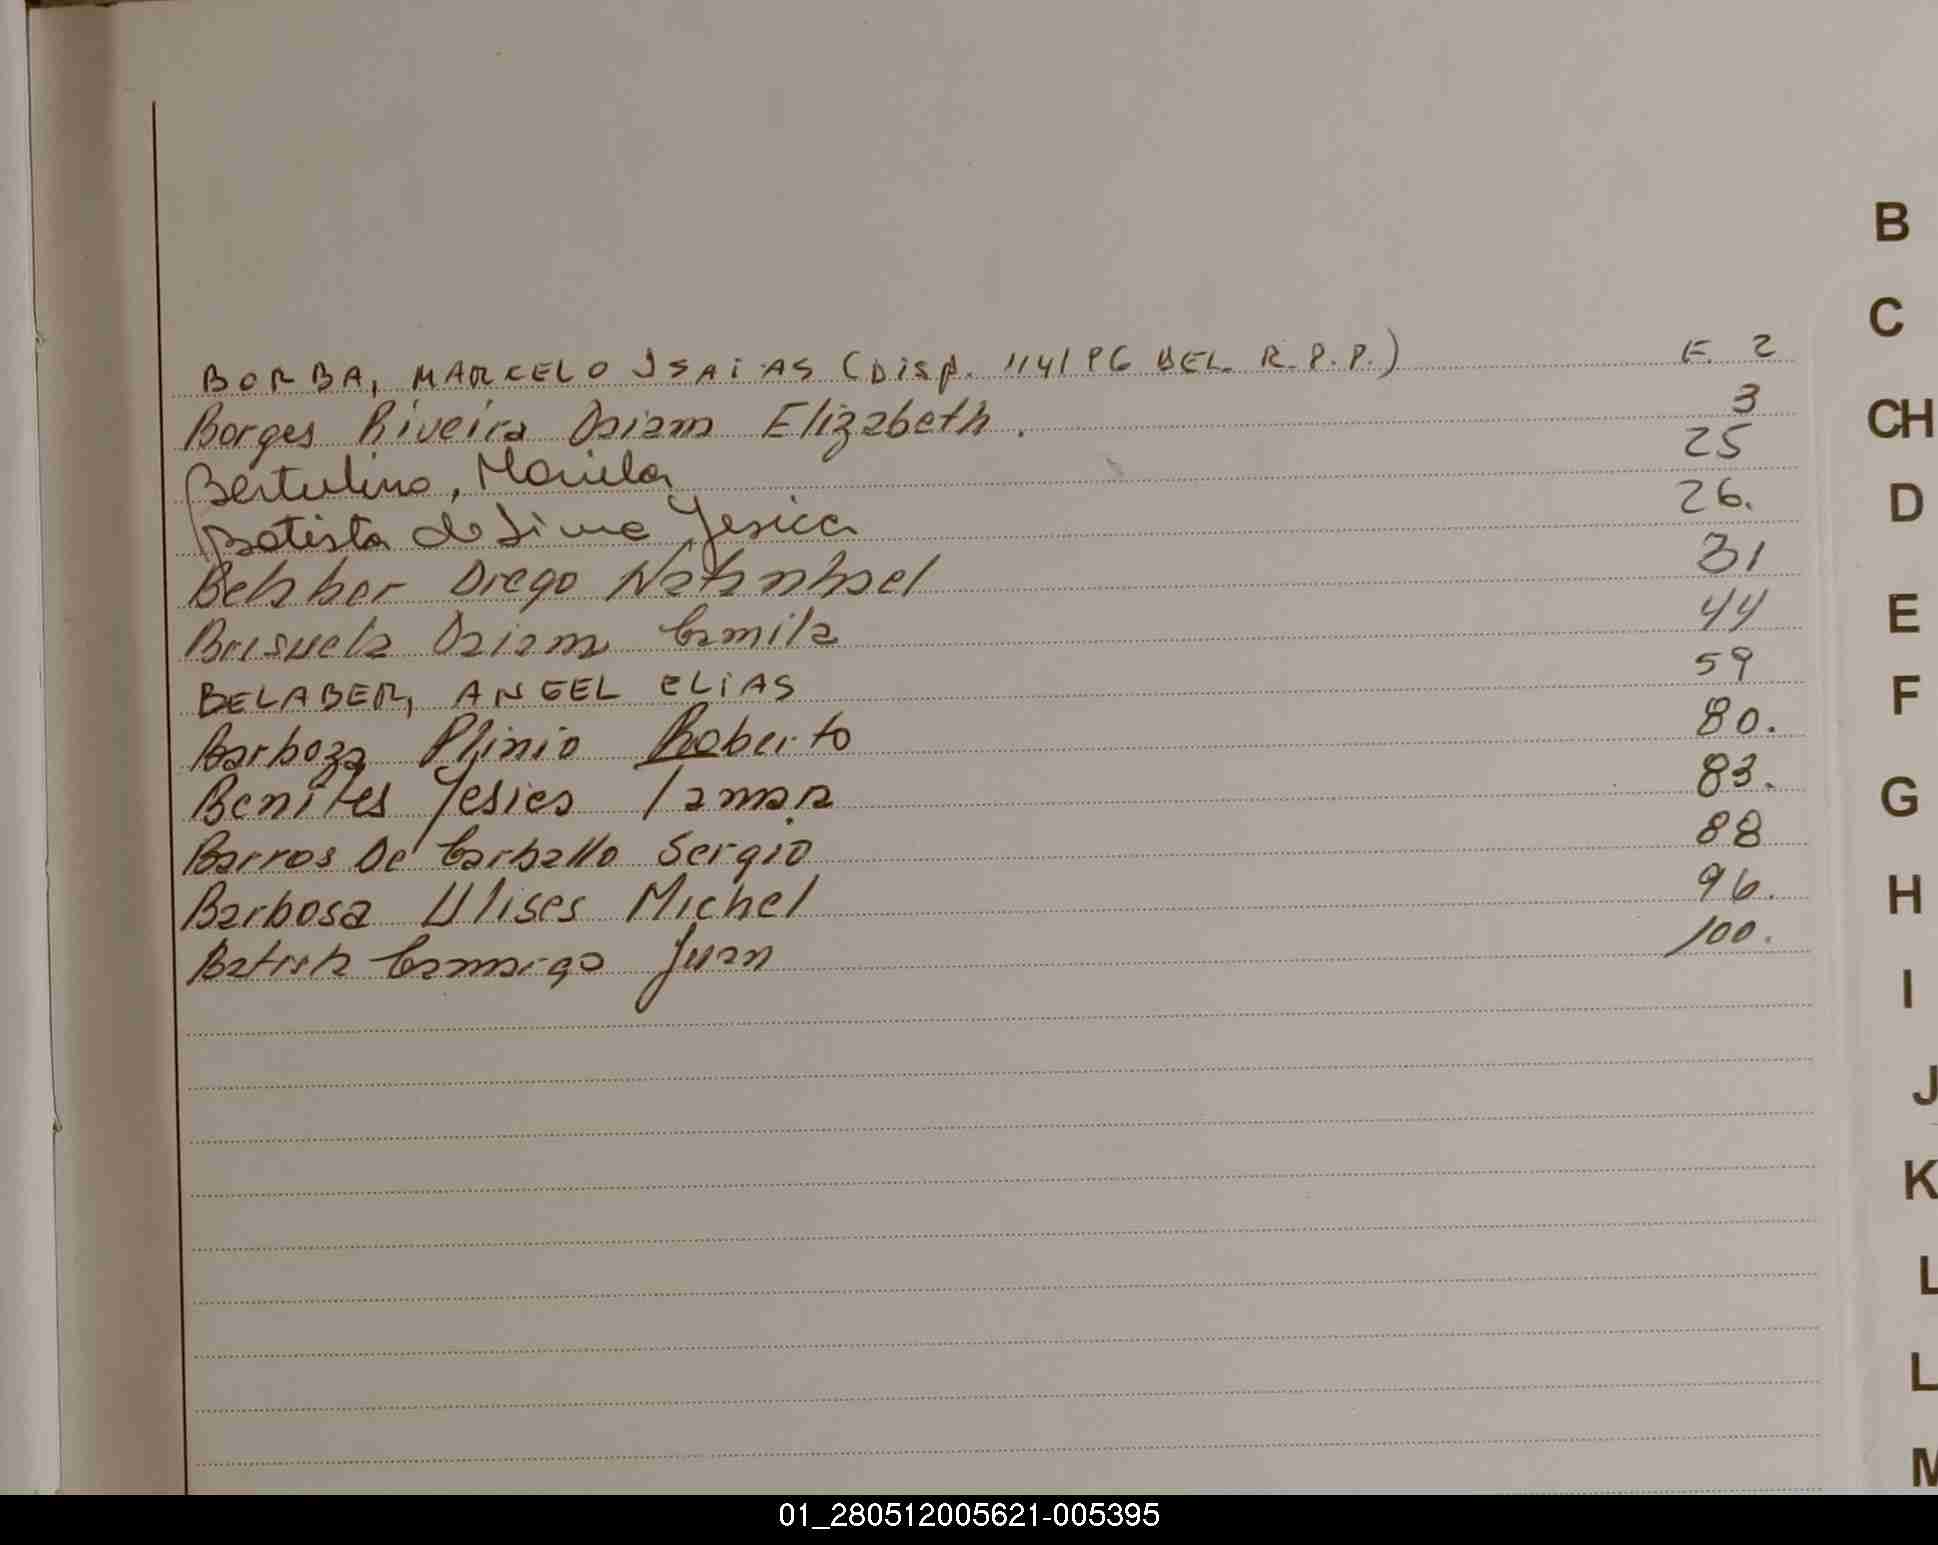 BORBA, MARCELO ISAIAS (Disp. 114/96 DEL. R.P.P.) F. 2
Borges Riveira Oziam Elizabeth. 3
Bertulino, Mariela 25
Batista de Lima Yesica 26.
Belaber Diego Natanael 31
Brisuela Camila 44
BELABER, ANGEL ELIAS 59
Barboza Plinio Roberto 80.
Benites Yesica Tamara 83.
Barros De Carballo Sergio 88
Barbosa Ulises Michel 96.
Batista Camargo Juan 100.
B
C
CH
D
E
F
G
H
I
J
K
L
L
M
01_280512005621-005395